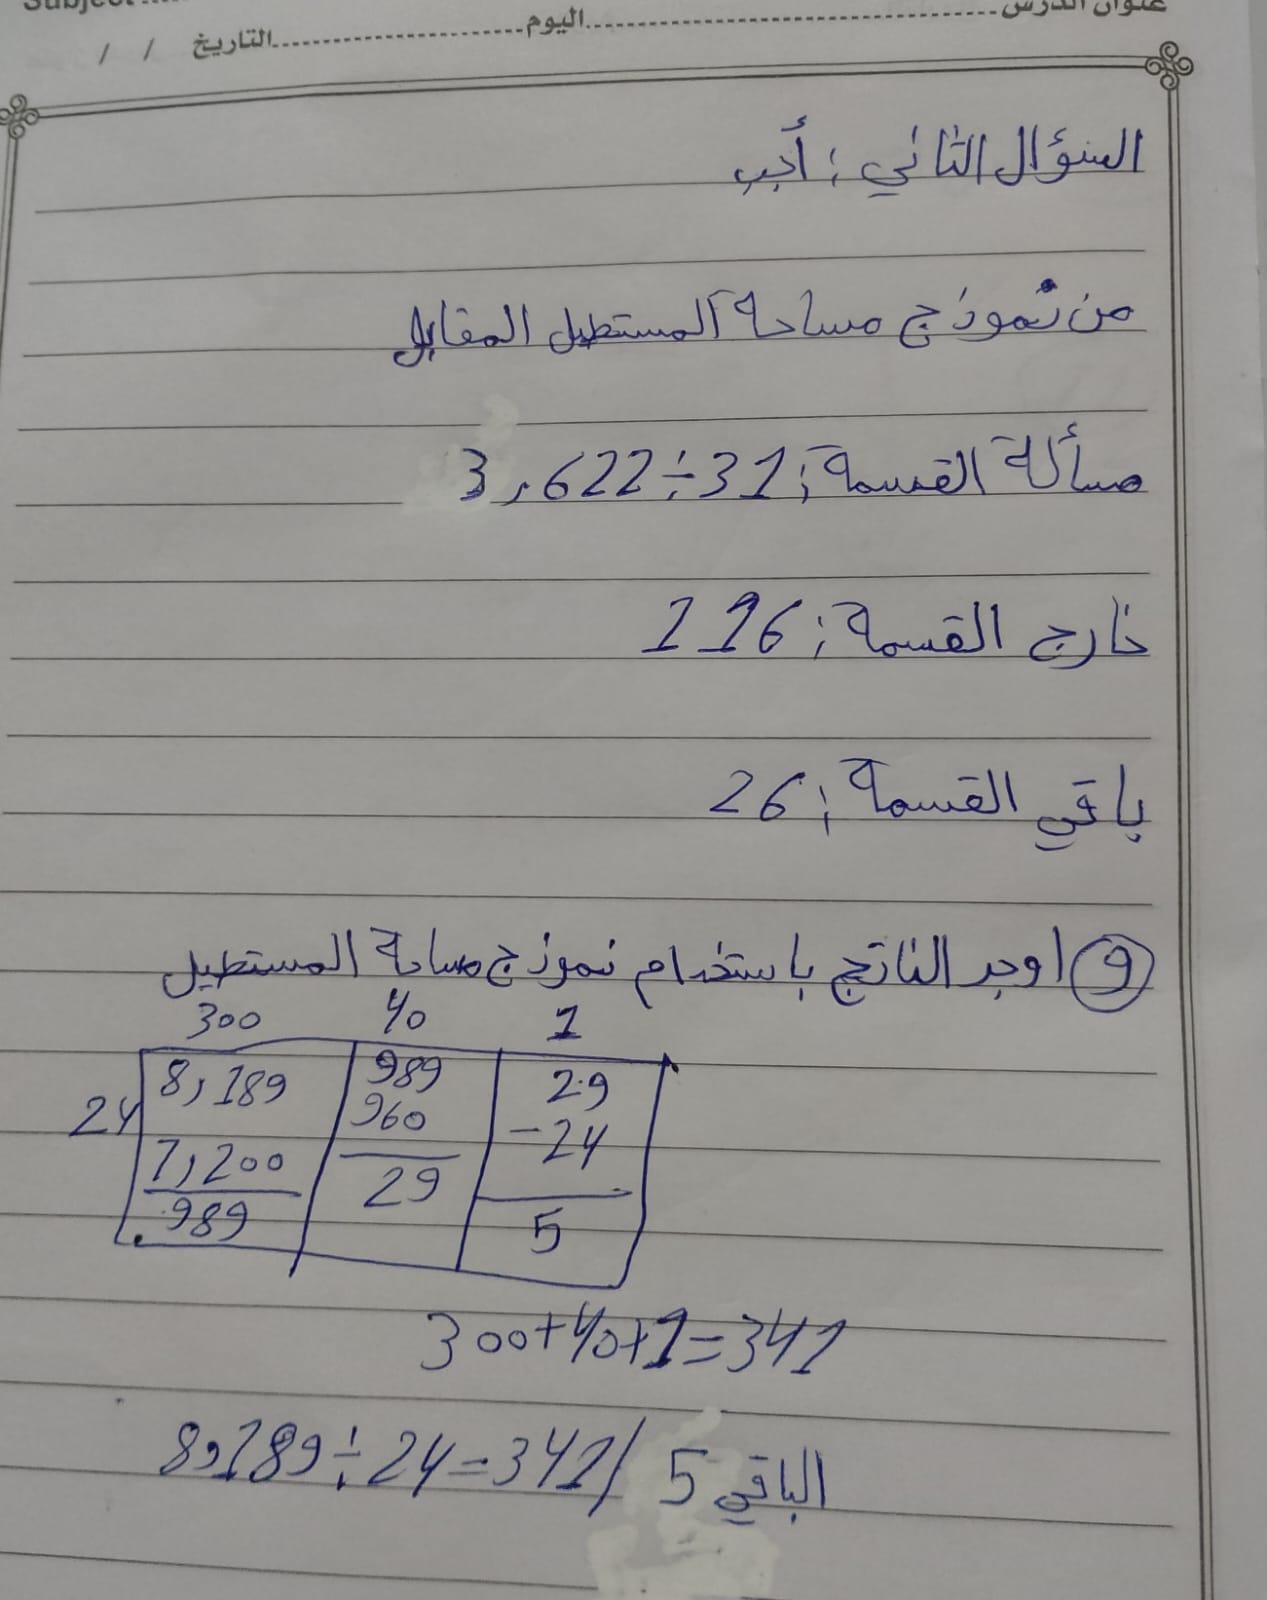 Subject
عنوان الدرس
اليوم
التاريخ / /
السؤال الثاني : أجب
من نموذج مساحة المستطيل المقابل
مسألة القسمة : 3,622 ÷ 31
خارج القسمة : 116
باقي القسمة : 26
9 اوجد الناتج باستخدام نموذج مساحة المستطيل
300 40 1
8,189 989 29
24 960 - 24
7,200 29
989 5
300+40+1=341
8,189 ÷ 24 = 341 / الباقي 5